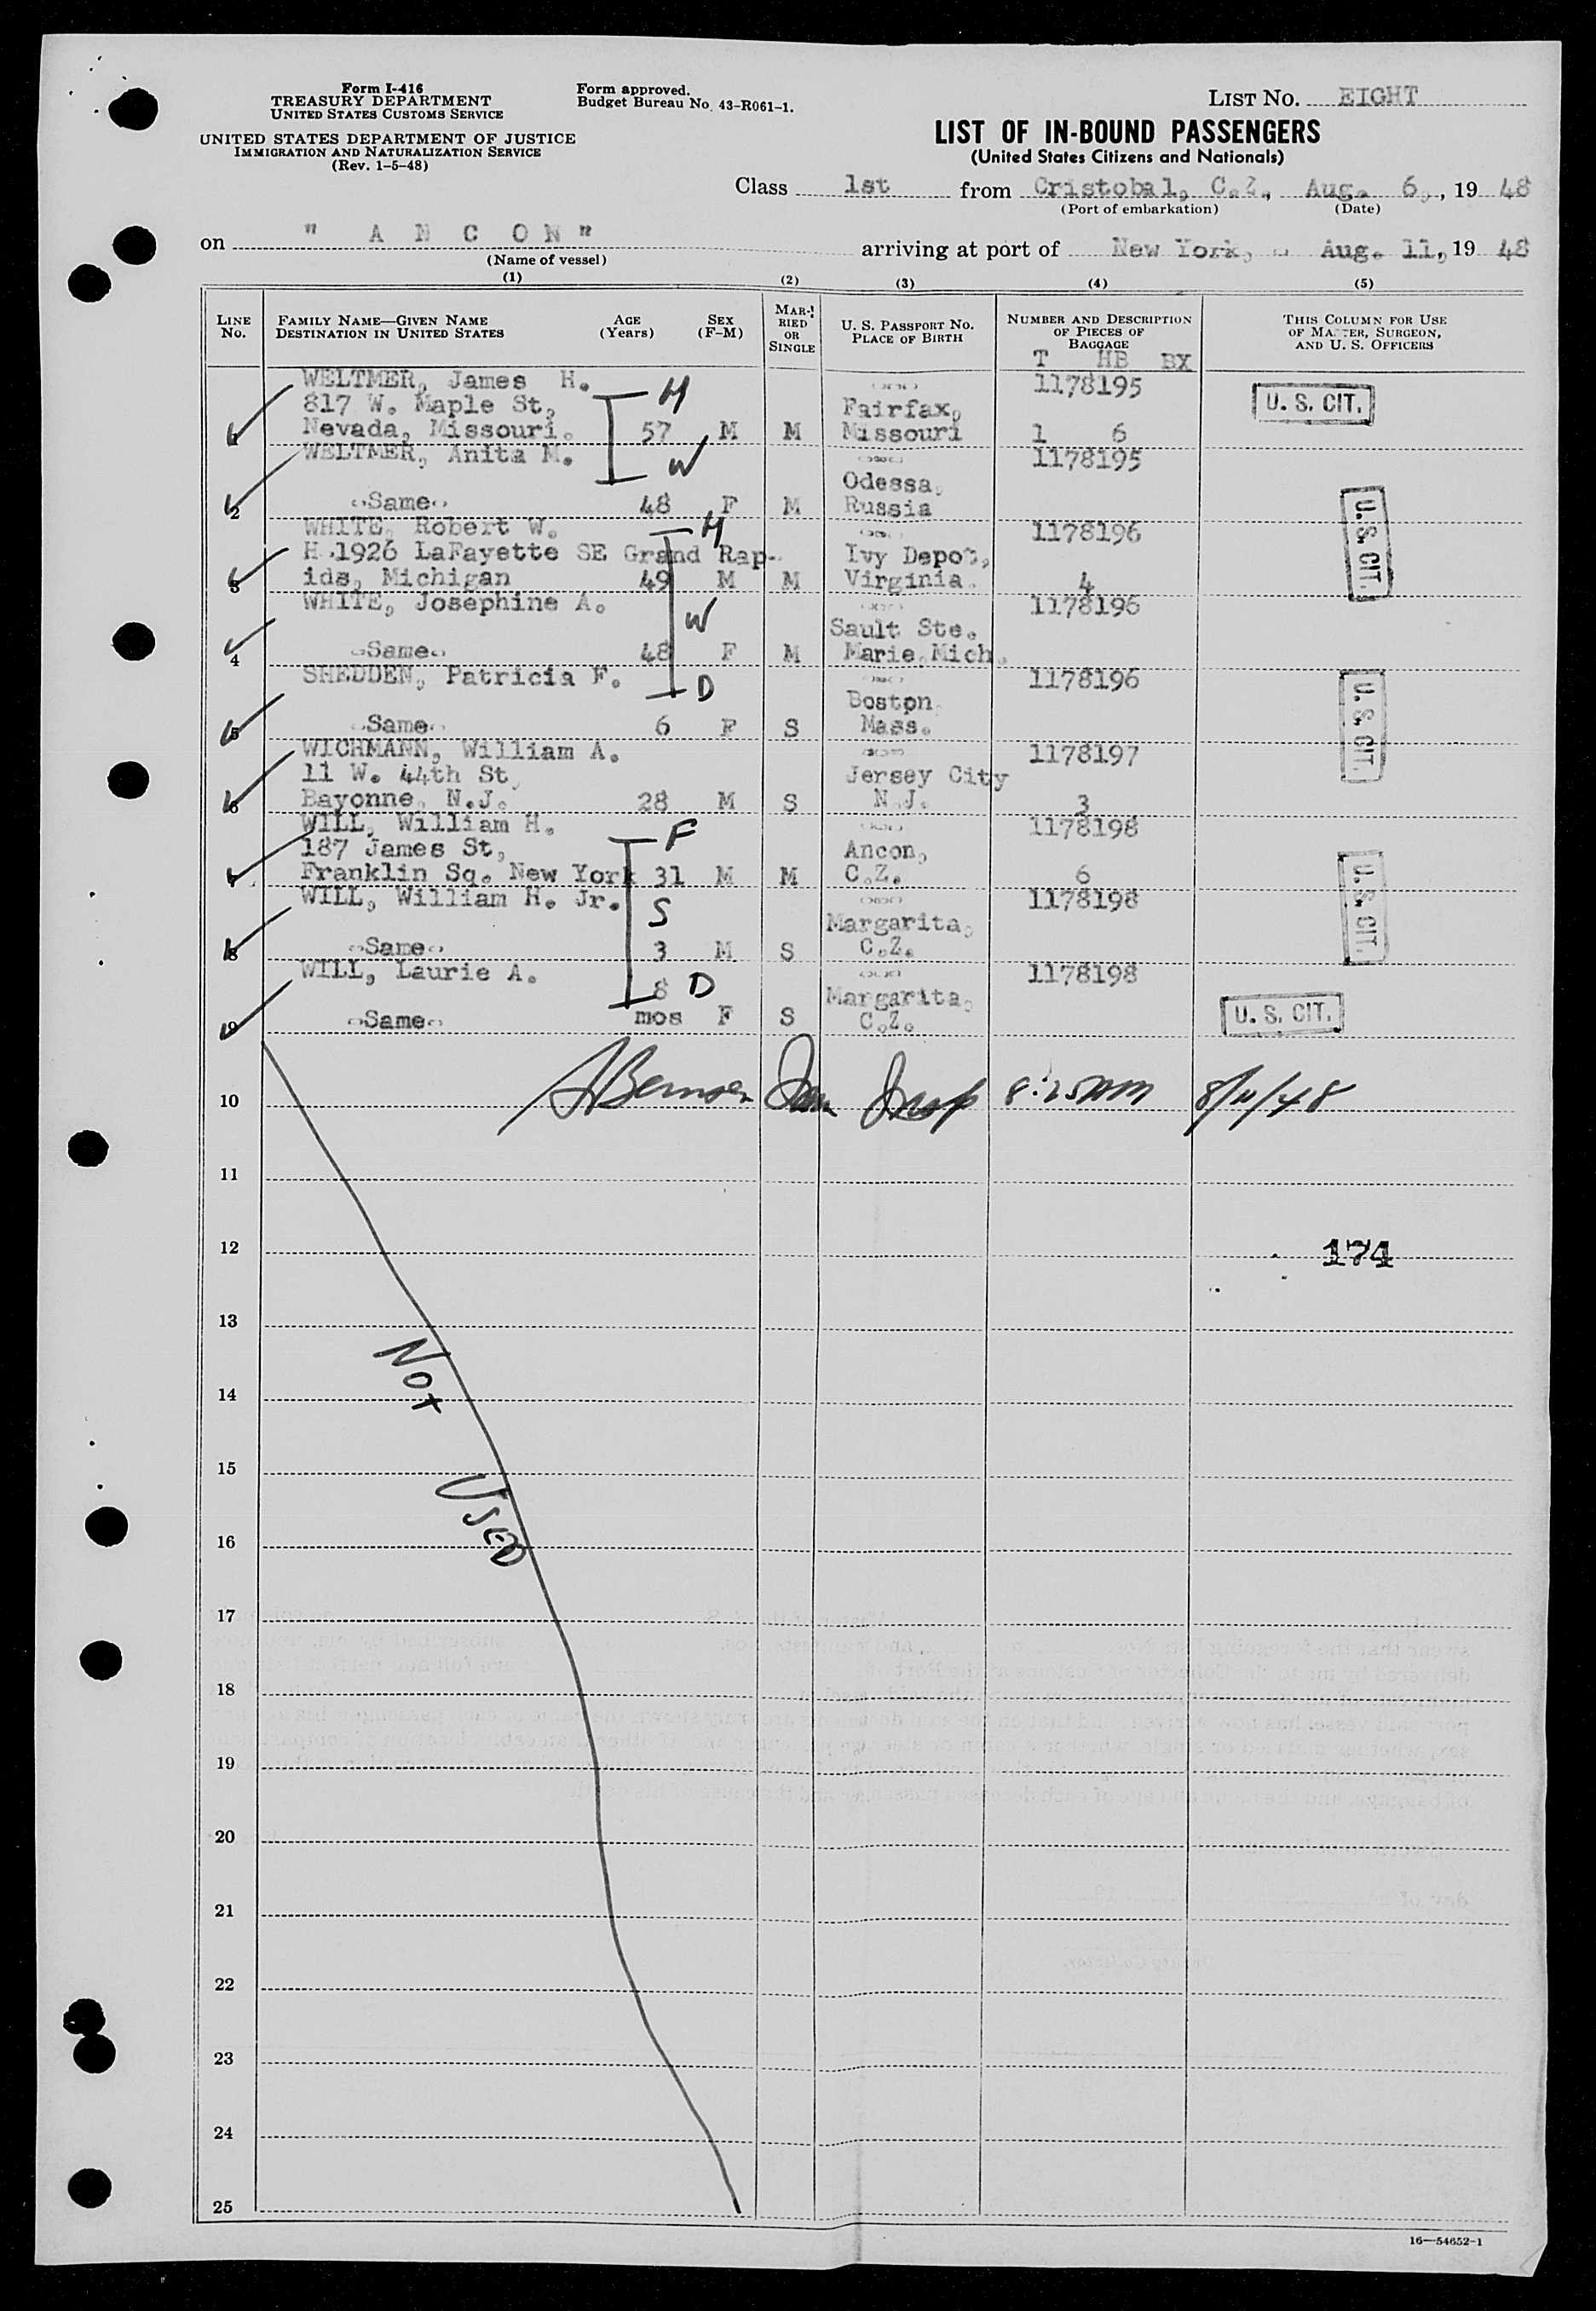 Form I-416
TREASURY DEPARTMENT
UNITED STATES CUSTOMS SERVICE
UNITED STATES DEPARTMENT OF JUSTICE
IMMIGRATION AND NATURALIZATION SERVICE
(Rev. 1-5-48)
Form approved.
Budget Bureau No. 43-R061-1.
LIST No. EIGHT
LIST OF IN-BOUND PASSENGERS
(United States Citizens and Nationals)
Class 1st from Cristobal, C.Z., Aug. 6, , 19 48
(Port of embarkation) (Date)
on " A N C O N " arriving at port of New York, Aug. 11, 19 48
(Name of vessel)
(1) (2) (3) (4) (5)
LINE No.
FAMILY NAME—GIVEN NAME
DESTINATION IN UNITED STATES
AGE (Years)
SEX (F-M)
MARRIED OR SINGLE
U. S. PASSPORT NO.
PLACE OF BIRTH
NUMBER AND DESCRIPTION OF PIECES OF BAGGAGE
T HB BX
THIS COLUMN FOR USE OF MASTER, SURGEON, AND U. S. OFFICERS
WELTMER, James H. H 1178195
817 W. Maple St, Fairfax, U. S. CIT.
1 Nevada, Missouri. 57 M M Missouri 1 6
WELTMER, Anita M. W 1178195
Odessa,
2 Same 48 F M Russia
WHITE, Robert W. H 1178196 U. S. CIT.
H 1926 LaFayette SE Grand Rap- Ivy Depot,
3 ids, Michigan 49 M M Virginia. 4
WHITE, Josephine A. W 1178196
Sault Ste.
4 Same 48 F M Marie, Mich.
SHEDDEN, Patricia F. D 1178196 U. S. CIT.
Boston
5 Same 6 F S Mass.
WICHMANN, William A. 1178197
11 W. 44th St, Jersey City
6 Bayonne, N.J. 28 M S N.J. 3
WILL, William H. F 1178198
187 James St, Ancon, U. S. CIT.
7 Franklin Sq. New York 31 M M C.Z. 6
WILL, William H. Jr. S 1178198
Margarita,
8 Same 3 M S C.Z.
WILL, Laurie A. 1178198
8 D Margarita, U. S. CIT.
9 Same mos F S C.Z.
10 Imm Insp 8:25AM 8/11/48
11
12 174
13
NOT
14
15
USED
16
17
18
19
20
21
22
23
24
25
16—54652-1